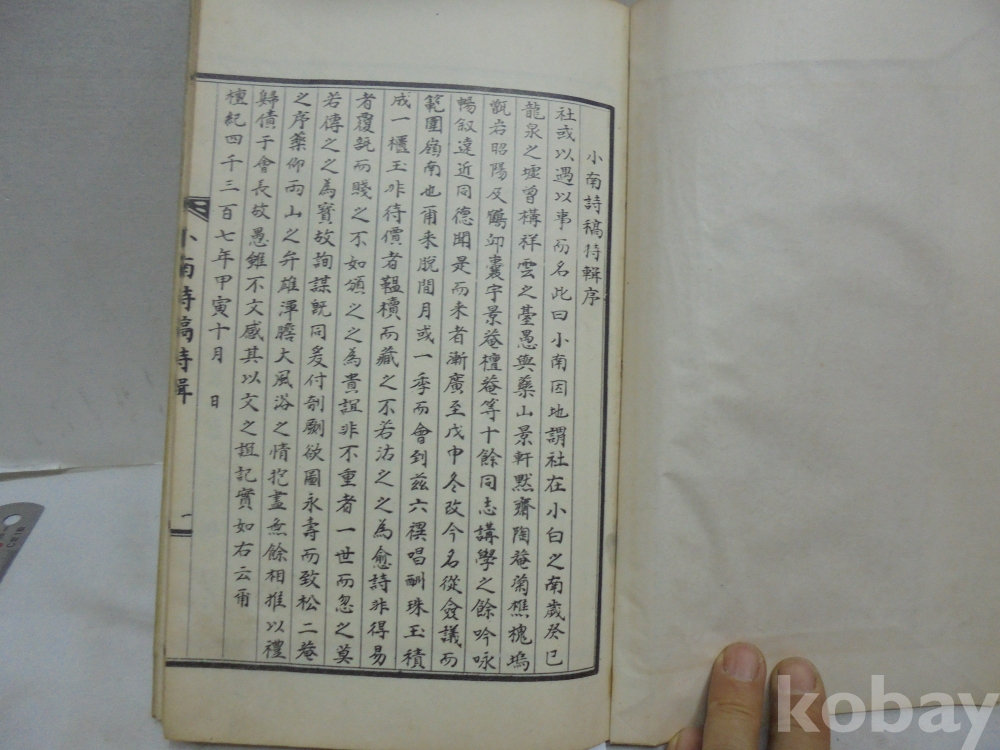 小南詩稿特輯序
社或以遇以事而名此曰小南因地謂社在小白之南歲癸巳
龍泉之墟曾構祥雲之臺愚與藥山景軒默齋陶菴菊樵槐塢
甑岩昭陽及鶴卬囊宇景菴檀菴等十餘同志講學之餘吟咏
暢叙遠近同德聞是而来者漸廣至戊申冬改今名從僉議而
範圍嶺南也爾来脫間月或一季而會到茲六禩唱酬珠玉積
成一櫃玉非待價者韞櫝而藏之不若沽之之為愈詩非得易
者覆瓿而賤之不如頒之之為貴詎非不重者一世而忽之莫
若傳之之為寶故詢謀既同爰付剞劂欲圖永壽而致松二菴
之序藥仰而山之弁雄渾贍大風浴之情抱盡無餘相推以禮
歸債于會長故愚雖不文感其以文之誼記實如右云爾
檀紀四千三百七年甲寅十月 日
小南詩稿特輯
一
kobay